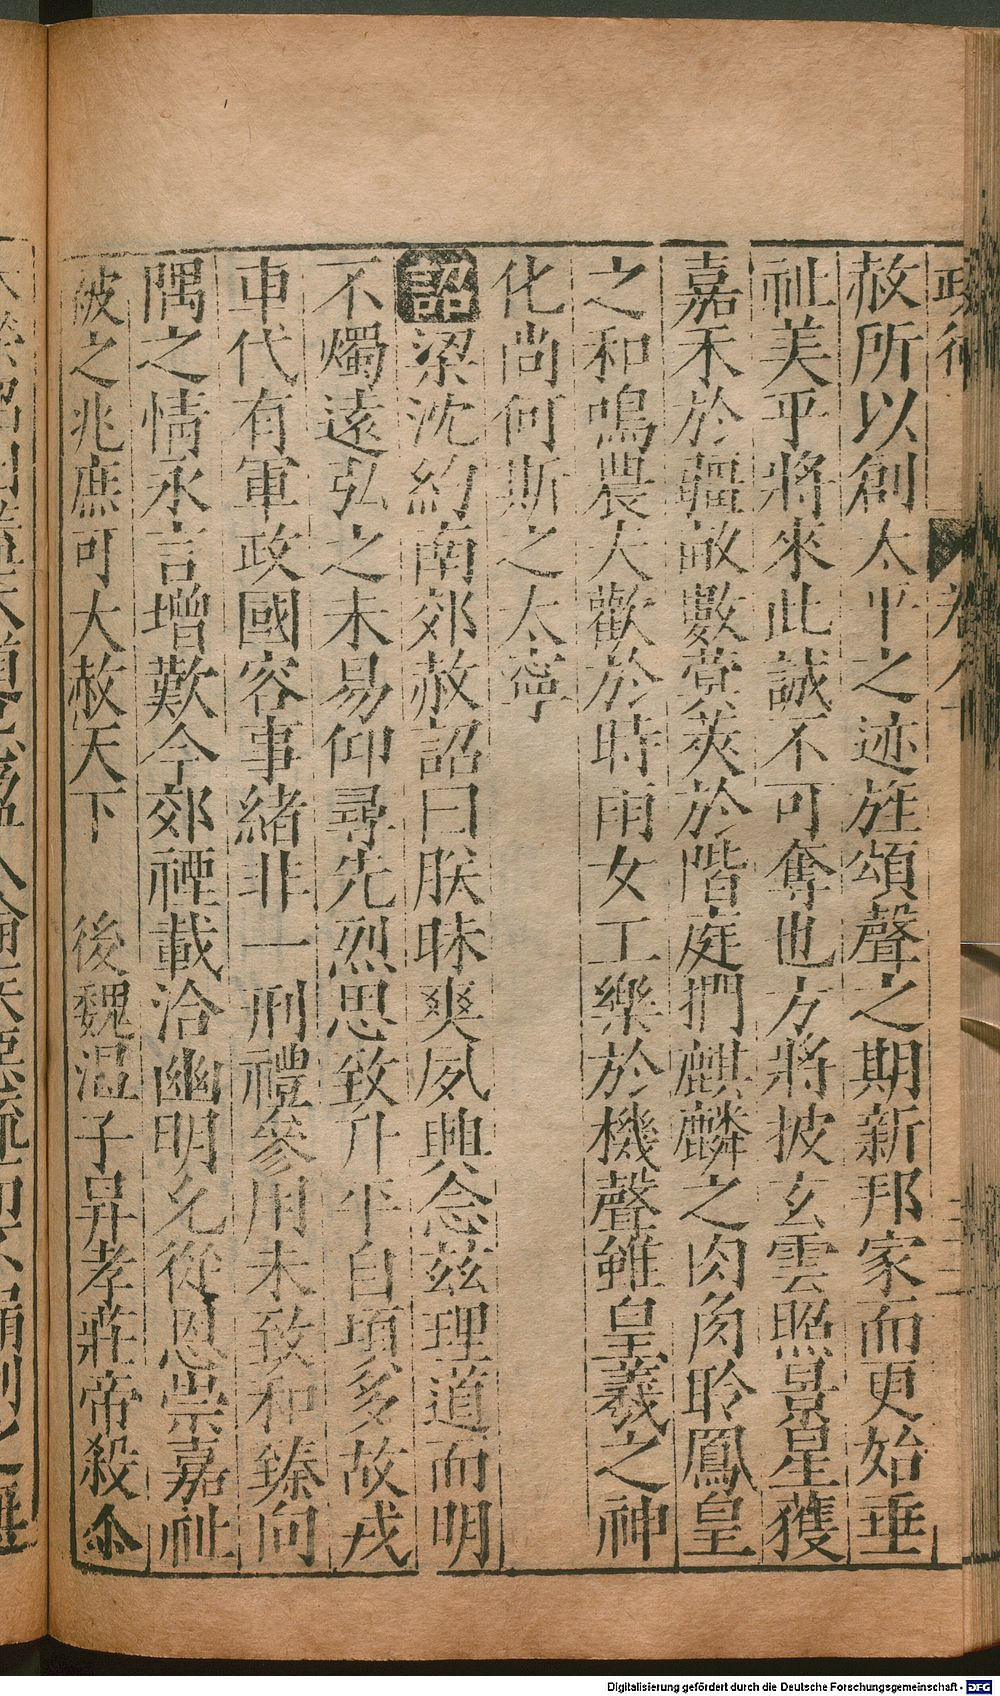 赦所以創太平之迹旌頌聲之期新邦家而更始垂
祉美乎將來此誠不可奪也方將披玄雲照景星獲
嘉禾於疆畝數蓂莢於階庭捫麒麟之肉角聆鳳皇
之和鳴農夫歡於時雨女工樂於機聲雖皇羲之神
化尚何斯之太寧
詔梁沈約南郊赦詔曰朕昧爽夙興念茲理道而明
不燭遠弘之未易仰尋先烈思致升平自頃多故戎
車代有軍政國容事緒非一刑禮參用未致和臻向
隅之情永言增歎今郊禋載洽幽明允從恩崇嘉祉
被之兆庶可大赦天下　後魏溫子昇孝莊帝殺尒
Digitalisierung gefördert durch die Deutsche Forschungsgemeinschaft - DFG